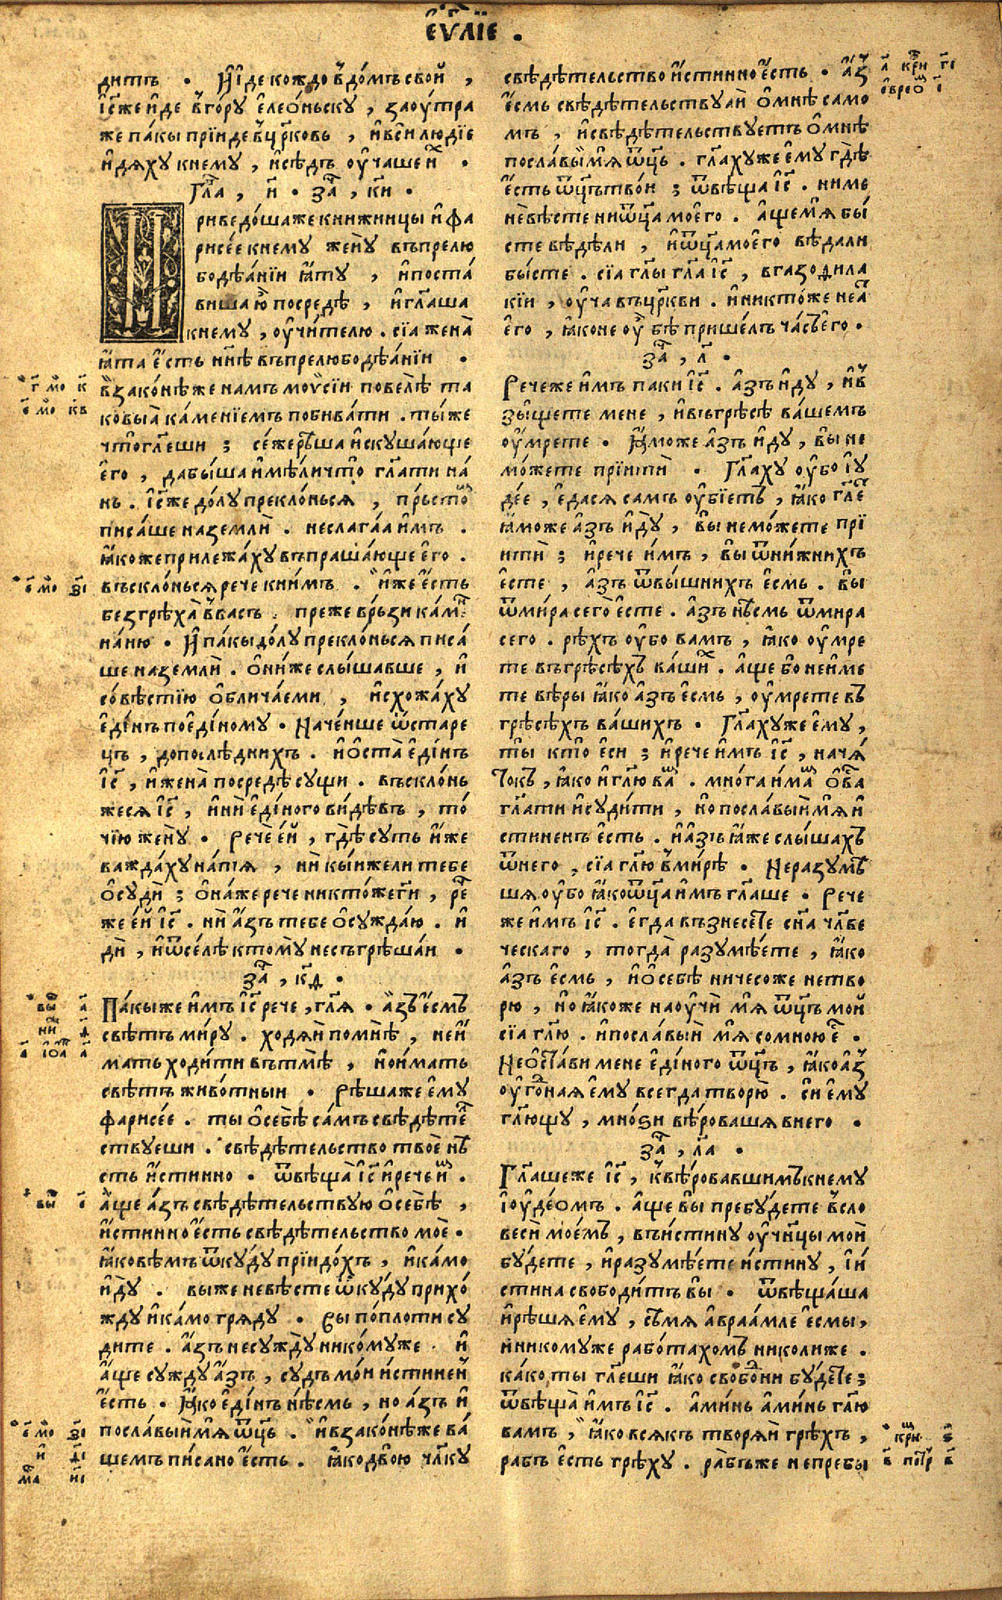 е҆ѵⷢ҇лїе .
дитъ . И҆ и҆де кождо в̾ дом̾ъ свой ,
і҆с҃ же и҆де в̾ гору є҆лео́ньску , заоу́тра
же па́кы прїиде в̾ цр҃ковь , и҆ вси́ людїе
и҆дяху к нему , и҆ сѣдъ оу҆чаше и҆ⷯ .
Гла̑ , и҃ . за̑ , к҃и .
Приведо́ша же книжницы и҆ фа
рисе́е к нему жену̀ въ прелю
бодѣа́нїи ꙗ҆ту , и҆ поста́
виша ю҆̀ посредѣ , и҆ гл҃аша
к нему , оу҆чи́телю . сїа жена̀
ꙗ҆та є҆сть нн҃ѣ въ прелюбодѣа́нїи .
в̾ зако́нѣ же намъ моѵ̈сїи повелѣ та
ковыѧ ка́менїемъ побива́ти . ты́ же
что̀ гл҃еши ; се́ же рѣша и҆скуша́юще
є҆го , да быша и҆мѣли что̀ гл҃ати на́
нь . і҆с҃ же до́лу прекло́нься , пръсто́ⷨ
писа́ше на земли̑ . не слага́а и҆мъ .
ꙗ҆коже прилежа́ху въпраша́юще є҆го .
въскло́нься рече к ни́мъ . и҆́же є҆сть
без грѣха̀ в̾ васъ . преже връ́зи ка́мⷺ
на́ ню . И҆ па́кы до́лу прекло́нься писа́
ше на земли̑ . о҆ни́ же слы́шавше , и҆
со́вѣстїю о҆блича́еми , и҆схожа́ху
є҆ди́нъ по є҆ди́ному . Наче́нше ѿ старе
цъ , до послѣднихъ . и҆ о҆ста̀ є҆ди́нъ
і҆с҃ , и҆ жена̀ посредѣ сущи . въскло́нь
же ся і҆с҃ , и҆ ни є҆ди́ного ви́дѣвъ , то́
чїю жену̀ . речѐ е҆́й , гдѣ суть и҆́же
важда́ху на́ тѧ , ни́ кыи же ли тебе
о҆суди̑ ; о҆на́ же рече никто́же г҃и , реⷱ
же е҆́й і҆с҃ . ни а҆́зъ тебе о҆сужда́ю . и҆
ди̑ , и҆ ѿсе́лѣ к тому̀ не съгрѣша́и .
за̑ , к҃д .
Па́кы же и҆мъ і҆с҃ рече , гл҃ѧ . а҆зъ є҆смъ
свѣтъ ми́ру . ходя́й по мнѣ , не и҆́
мать ходи́ти въ тмѣ , но и҆мать
свѣтъ живо́тныи . рѣша же є҆му
фарисе́е . ты о҆ себѣ са́мъ свѣдѣтеⷧ
ствуеши . свѣдѣтельство твоѐ нѣ
сть и҆́стинно . ѿвѣща̀ і҆с҃ и҆ рече иⷨ .
а҆ще а҆́зъ свѣдѣтельствую о҆ себѣ̀ ,
и҆́стинно є҆сть свѣдѣтельство моѐ .
ꙗ҆ко вѣмъ ѿкуду прїидо́хъ , и҆ ка́мо
и҆ду̀ . вы же не вѣсте ѿкуду прихо́
жду и҆ ка́мо гряду . вы по плоти су
дите . а҆́зъ не сужду̀ нико́муже . и҆
а҆ще сужду а҆́зъ , судъ мо́и и҆стинен
є҆́сть . Ꙗ҆ко є҆ди́нъ нѣсмь , но а҆зъ и҆
посла́выи̑ мѧ ѿц҃ь . и҆ в зако́нѣ же ва́
шемъ пи́сано є҆сть . ꙗ҆ко двою чл҃ку
свѣдѣтельство и҆́стинно є҆сть . а҆зъ
є҆смь свѣдѣтельствуай о҆ мнѣ само
мъ , и҆ свѣдѣтельствуетъ о҆ мнѣ
посла́выи мѧ ѿц҃ь . гл҃аху же є҆му гдѣ
є҆сть ѿц҃ъ твои ; ѿвѣща і҆с҃ . ни ме
не́ вѣсте ни ѿц҃а моего . а҆ще мѧ бы́
сте вѣдѣли , и҆ ѿц҃а моего вѣдали
бы́сте . сїа гл҃ы гл҃а і҆с҃ , в газоѳила
кїи , оу҆ча въ цр҃кви . и҆ никто́же не ꙗ҆́
є҆го , ꙗ҆ко не оу҆̀ бѣ пришелъ ча́съ є҆го .
за̑ , л҃ .
Рече же и҆мъ паки і҆с҃ . а҆зъ и҆ду , и҆ в̾
зы́щете мене , и҆ въ грѣсѣ̀ ва́шемъ
оу҆мрете . И҆́може а҆́зъ и҆ду , вы не
мо́жете прїити̑ . Гл҃аху оу҆бо і҆у
де́е , є҆да ся самъ оу҆бїетъ , ꙗ҆ко гл҃е
ꙗ҆може а҆зъ и҆ду̀ , вы не мо́жете прї
ити̑ ; и҆ рече и҆мъ , вы ѿ ни́жнихъ
є҆сте , а҆зъ ѿ вы́шнихъ є҆смь . вы
ѿ ми́ра сего̀ є҆сте . а҆зъ нѣсмь ѿ мира
сего . рѣхъ оу҆бо вамъ , ꙗ҆ко оу҆мре
те въ грѣсѣхъ ва́шиⷯ . а҆ще бо не и҆ме
те вѣры ꙗ҆ко а҆зъ є҆смь , оу҆мрете въ
грѣсѣхъ ва́шихъ . Гл҃аху же є҆му ,
ты кто̀ еси ; и҆ рече и҆мъ і҆с҃ , нача́
токъ , ꙗ҆ко и҆ гл҃ю ваⷨ . мно́га и҆маⷨ о҆ ваⷭ
гл҃ати и҆ суди́ти , но посла́выи мѧ и҆
стиненъ є҆сть . и҆ а҆зъ ꙗ҆же слышахъ
ѿ него , сїа гл҃ю в̾ ми́рѣ . Не разумѣ
ша оу҆бо ꙗ҆ко ѿц҃а и҆мъ гл҃аше . Рече
же и҆мъ і҆с҃ . є҆гда възнесе́те сн҃а чл҃ве
ческаго , тогда̀ разумѣете , ꙗ҆ко
а҆зъ є҆смь , и҆ о҆ себѣ ничесоже не тво
рю , но ꙗ҆коже научи́ мѧ ѿц҃ъ мой
сїа гл҃ю . и҆ посла́выи̑ мѧ со мною еⷭ .
Не о҆ста́ви мене є҆ди́ного ѿц҃ъ , ꙗ҆ко а҆з
оу҆го́дная є҆му всегда творю̀ . си є҆му
гл҃ющу , мно́ѕи вѣ́роваша в него .
за̑ , л҃а .
Гл҃аше же і҆с҃ , к̾ вѣ́ровавшимъ к нему
і҆оуде́омъ . а҆ще вы пребу́дете в̾ сло
веси̑ мое́мъ , въи́стину оу҆чн҃цы мои̑
бу́дете , и҆ разумѣ́ете и҆стину , і҆ и҆́
стина свободи́тъ вы . ѿвѣща́ша
и҆ рѣша є҆му , сѣ́мя а҆враа́мле є҆смы ,
и҆ никому́же рабо́тахомъ николиже .
ка́ко ты гл҃еши ꙗ҆ко свобо́ни бу́дете ;
ѿвѣща̀ и҆мъ і҆с҃ . а҆ми́нь а҆ми́нь гл҃ю
вамъ , ꙗ҆ко всякъ творя́й грѣхъ ,
рабъ е҆сть грѣху . ра́бъ же не пребы